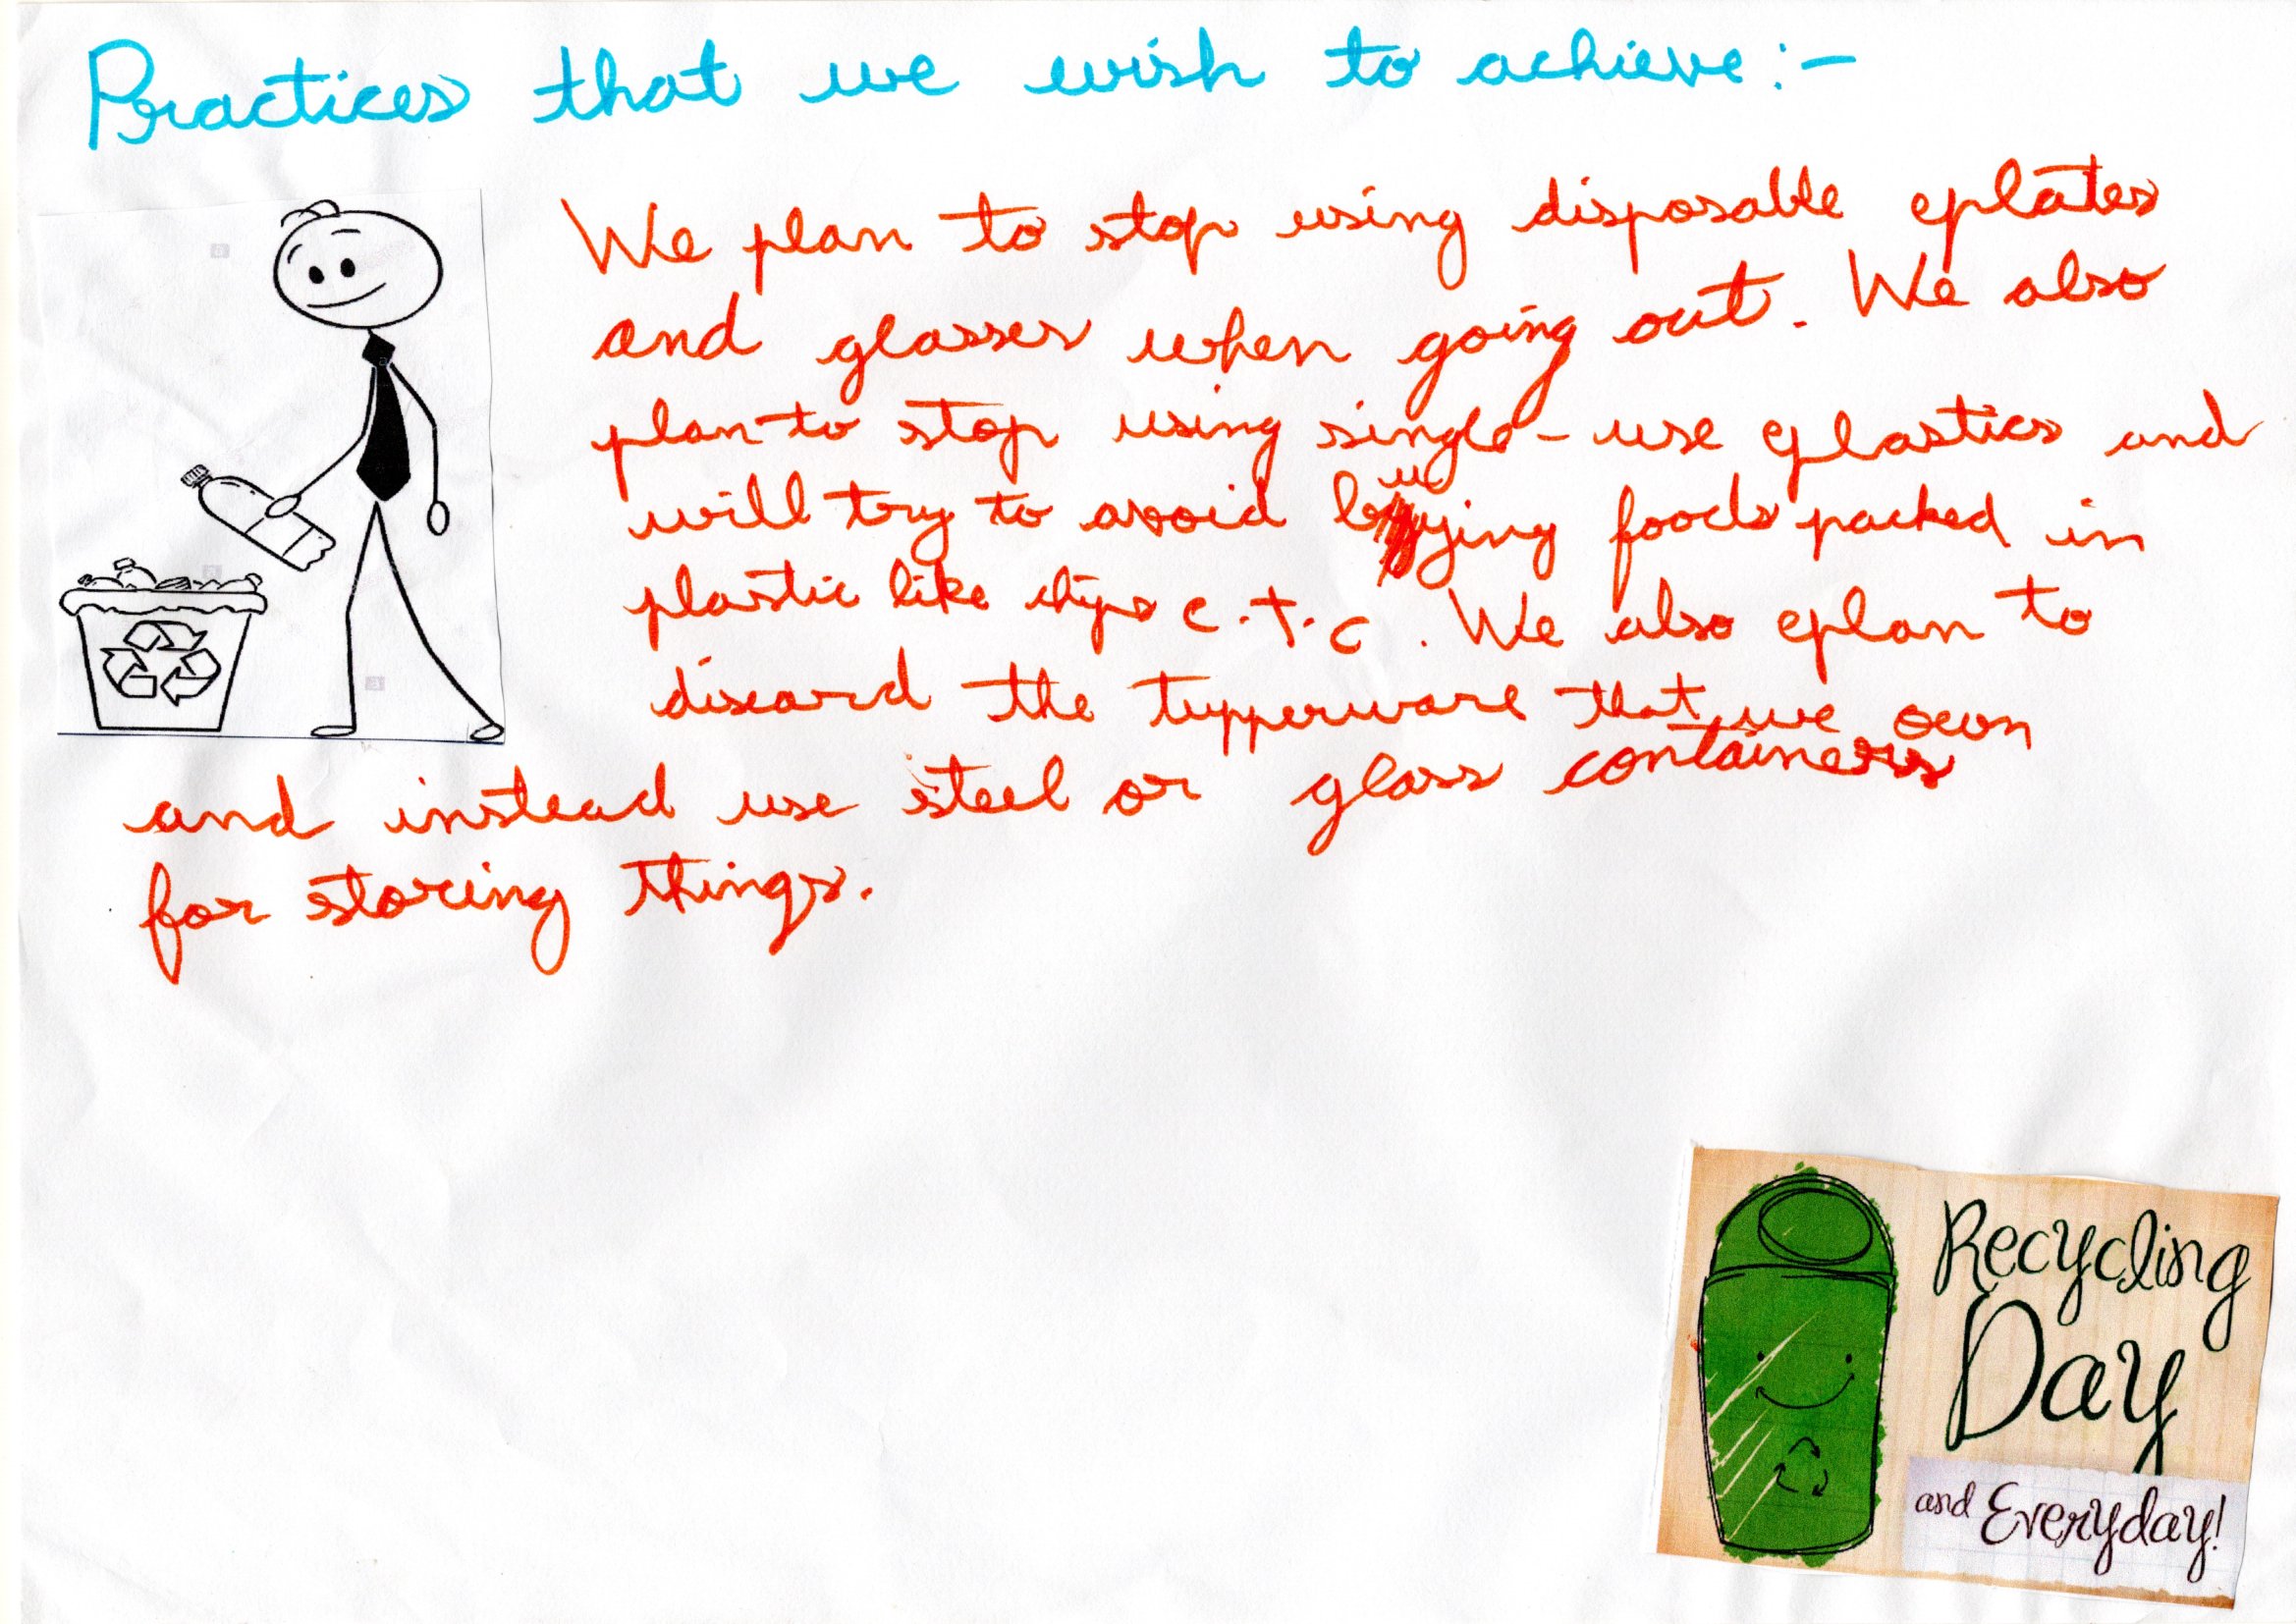 Practices that we wish to achieve:-
We plan to stop using disposable plates
and glasses when going out. We also
plan to stop using single-use plastics and
will try to avoid buying foods packed in
plastic like chips e.t.c. We also plan to
discard the tupperware that we own
and instead use steel or glass containers
for storing things.
Recycling
Day
and Everyday!